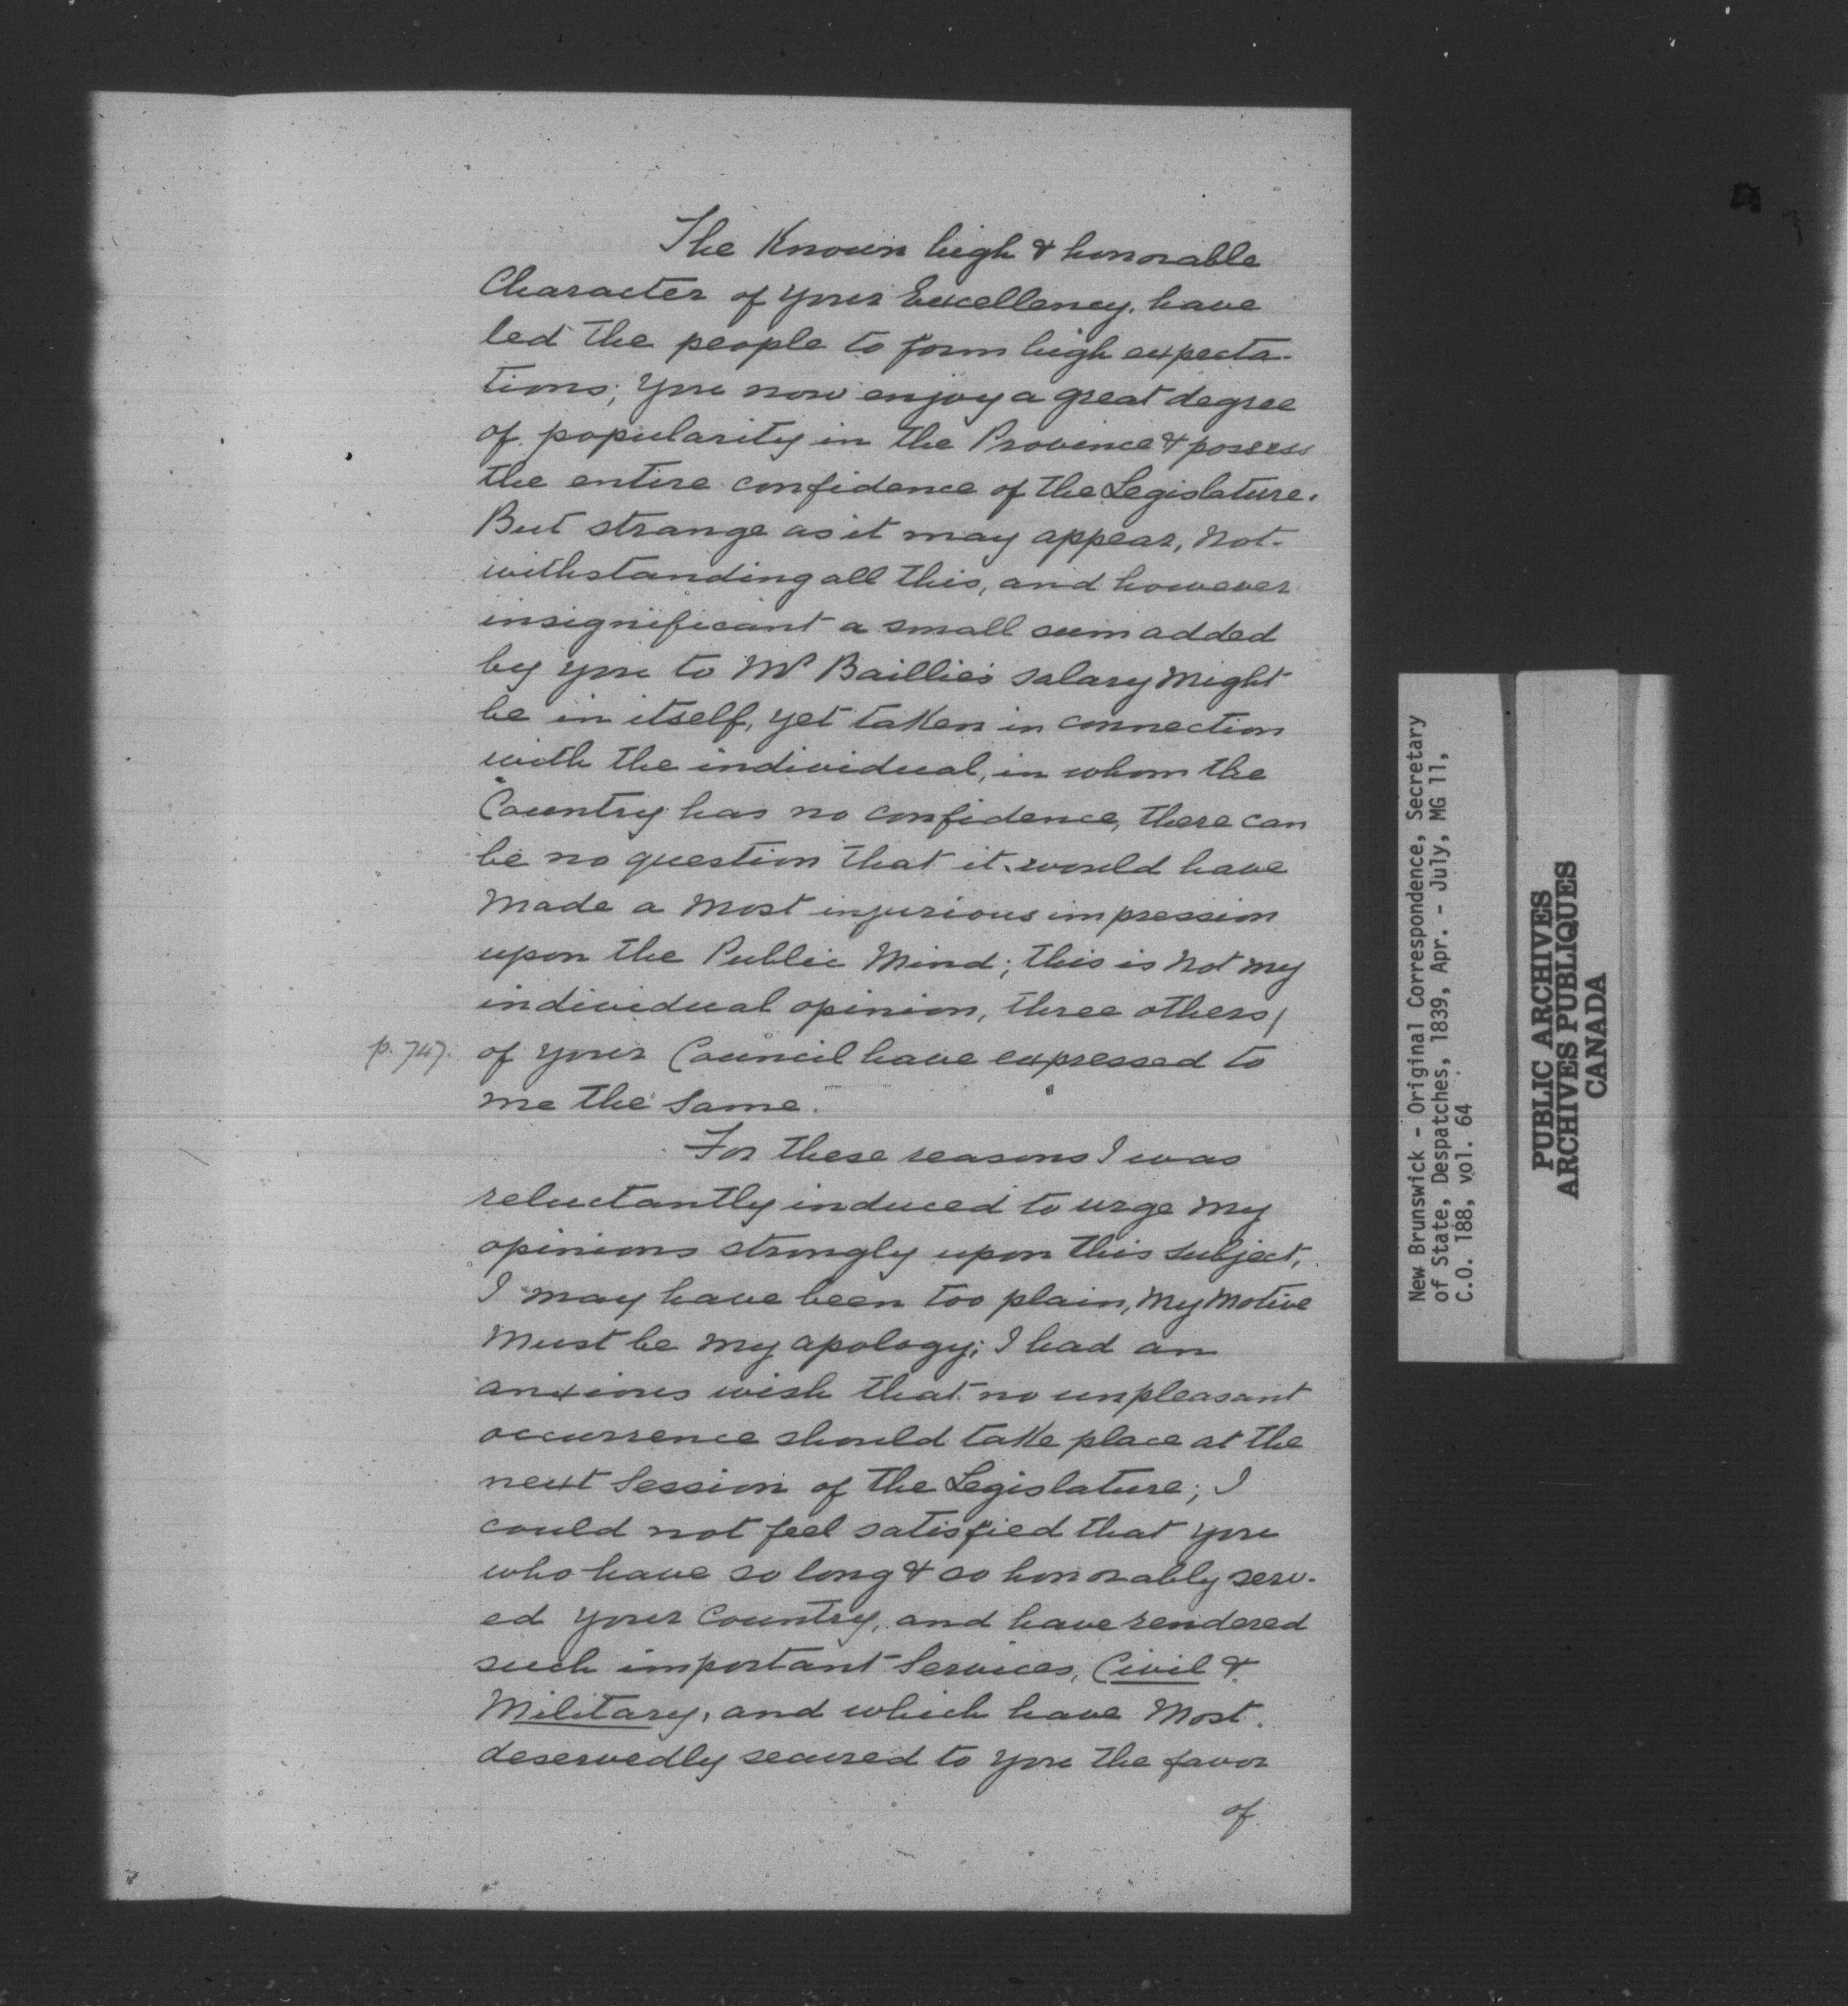 The Known high & honorable
Character of your Excellency, have
led the people to form high expecta-
tions; you now enjoy a great degree
of popularity in the Province & possess
the entire confidence of the Legislature.
But strange as it may appear, Not-
withstanding all this, and however
insignificant a small sum added
by you to Mr Baillie's salary Might
be in itself, yet taken in connection
with the individual, in whom the
Country has no confidence, there can
be no question that it would have
Made a Most injurious impression
upon the Public Mind; this is Not my
individual opinion, three others/
p. 747. of your Council have expressed to
me the Same.
For these reasons I was
reluctantly induced to urge My
opinions strongly upon this subject,
I may have been too plain, My Motive
Must be My apology; I had an
anxious wish that no unpleasant
occurrence should take place at the
next Session of the Legislature; I
could not feel satisfied that you
who have so long & so honorably serv-
ed your Country, and have rendered
such important Services, Civil &
Military, and which have Most
deservedly secured to you the favor
of
New Brunswick - Original Correspondence, Secretary
of State, Despatches, 1839, Apr. - July, MG 11,
C.O. 188, vol. 64
PUBLIC ARCHIVES
ARCHIVES PUBLIQUES
CANADA